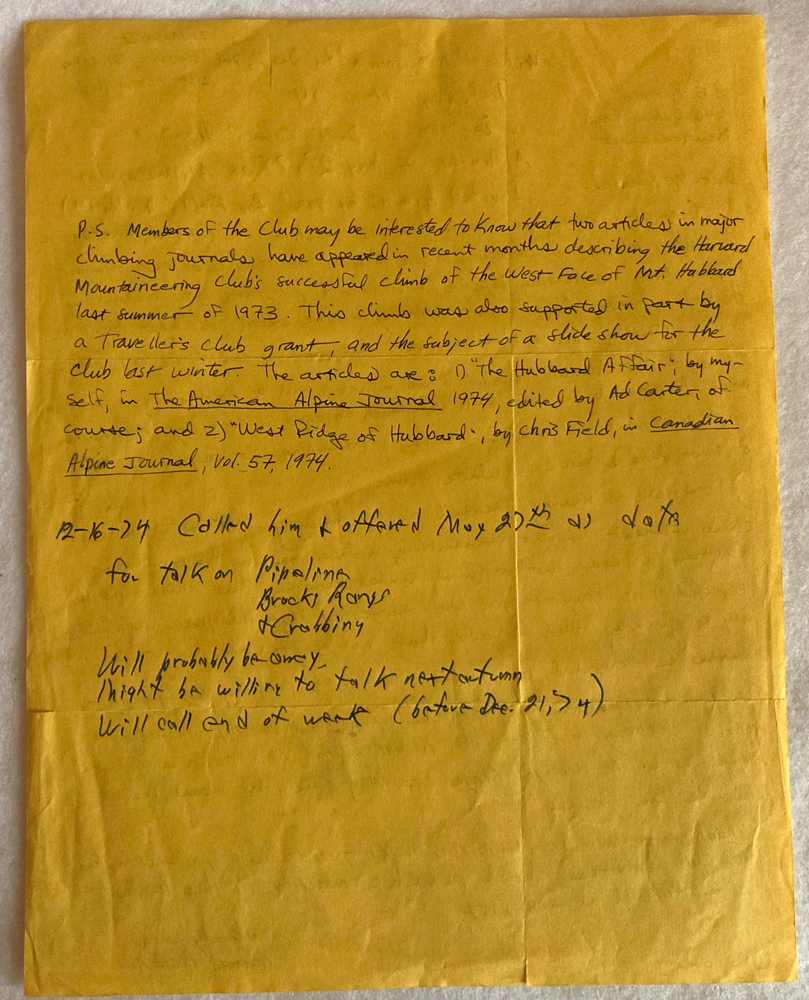 P.S. Members of the Club may be interested to know that two articles in major
climbing journals have appeared in recent months describing the Harvard
Mountaineering Club's successful climb of the West Face of Mt. Hubbard
last summer of 1973. This climb was also supported in part by
a Traveller's Club grant, and the subject of a slide show for the
club last winter. The articles are: 1) "The Hubbard Affair", by my-
self, in The American Alpine Journal 1974, edited by Ad Carter, of
course; and 2) "West Ridge of Hubbard", by Chris Field, in Canadian
Alpine Journal, Vol. 57, 1974.
12-16-74 Called him & offered May 27th as date
for talk on Pipeline
Brooks Range
& Crabbing
Will probably be away.
Might be willing to talk next autumn
Will call end of week (before Dec. 21, 74)